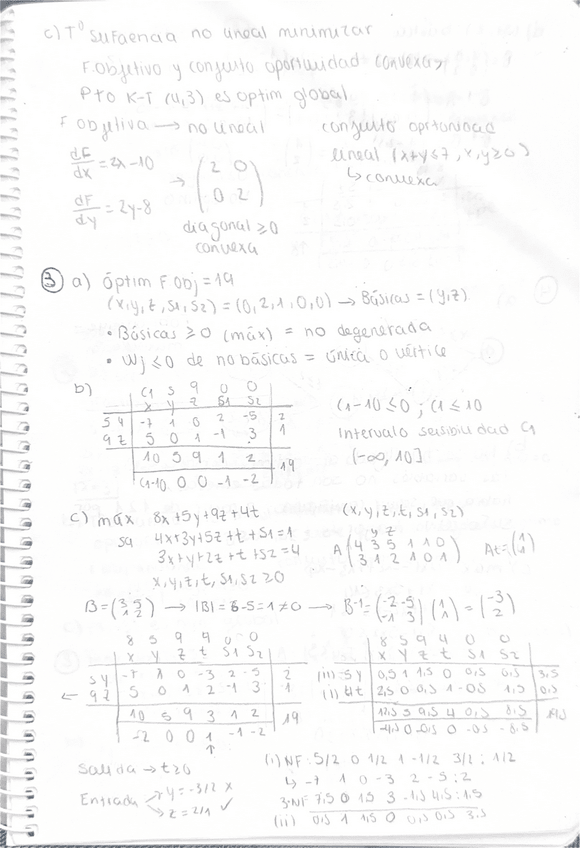 c) Tº suficiencia no lineal minimizar
F.objetivo y conjunto oportunidad convexas
Pto K-T (4,3) es optim global
F objetiva → no lineal
dF/dx = 2x-10
dF/dy = 2y-8
→ (2 0
0 2)
diagonal ≥ 0
convexa
conjunto oportunidad
lineal (x+y≤7, x,y≥0)
↳ convexa
③ a) óptim F obj = 19
(x,y,z,s1,s2) = (0,2,1,0,0) → Básicas = (y,z)
• Básicas ≥ 0 (máx) = no degenerada
• Wj ≤ 0 de no básicas = única o vértice
b)
C1 5 9 0 0
x y z s1 s2
5 y -7 1 0 2 -5 2
9 z 5 0 1 -1 3 1
10 5 9 1 2 19
C1-10 0 0 -1 -2
C1-10 ≤ 0 ; C1 ≤ 10
Intervalo sensibilidad C1
(-∞, 10]
c) máx 8x+5y+9z+4t
sa 4x+3y+5z+t+s1=1
3x+y+2z+t+s2=4
x,y,z,t,s1,s2 ≥ 0
(x,y,z,t,s1,s2)
y z
A (4 3 5 1 1 0
3 1 2 1 0 1)
At = (1
1)
B = (3 5
1 2) → |B| = 6-5 = 1 ≠ 0 → B-1 = (2 -5
-1 3) (1
1) = (-3
2)
8 5 9 4 0 0
x y z t s1 s2
5 y -7 1 0 -3 2 -5 2
← 9 z 5 0 1 2 -1 3 1
10 5 9 3 1 2 19
-2 0 0 1 -1 -2
↑
8 5 9 4 0 0
x y z t s1 s2
(ii) 5 y 0,5 1 1,5 0 0,5 0,5 3,5
(i) 4 t 2,5 0 0,5 1 -0,5 1,5 0,5
12,5 5 9,5 4 0,5 8,5 19,5
-4,5 0 -0,5 0 -0,5 -8,5
Salida → t≥0
Entrada → y = -3/2 x
→ z = 2/1 ✓
(i) NF: 5/2 0 1/2 1 -1/2 3/2 ; 1/2
↳ -7 1 0 -3 2 -5 ; 2
3·NF 7,5 0 1,5 3 -1,5 4,5 ; 1,5
(ii) 0,5 1 1,5 0 0,5 0,5 3,5